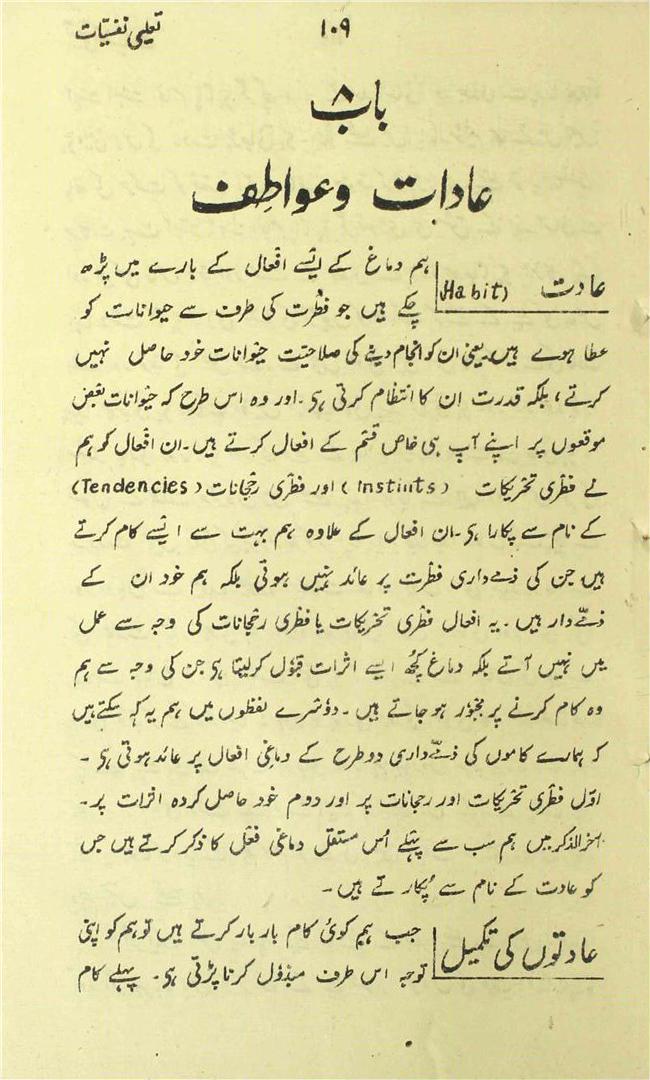 تعلیمی نفسیّات ۱۰۹
باب ۸
عادات و عواطِف
عادت (Habit) ہم دماغ کے ایسے افعال کے بارے میں پڑھ
چکے ہیں جو فطرت کی طرف سے حیوانات کو
عطا ہوے ہیں۔ یعنی ان کو انجام دینے کی صلاحیت حیوانات خود حاصل نہیں
کرتے، بلکہ قدرت ان کا انتظام کرتی ہی۔ اور وہ اس طرح کہ حیوانات بعض
موقعوں پر اپنے آپ ہی خاص قسم کے افعال کرتے ہیں۔ ان افعال کو ہم
نے فطری تحریکات (Instiuts) اور فطری رجحانات (Tendencies)
کے نام سے پکارا ہی۔ ان افعال کے علاوہ ہم بہت سے ایسے کام کرتے
ہیں جن کی ذمےداری فطرت پر عائد نہیں ہوتی بلکہ ہم خود ان کے
ذمّےدار ہیں۔ یہ افعال فطری تحریکات یا فطری رجحانات کی وجہ سے عمل
میں نہیں آتے بلکہ دماغ کچھ ایسے اثرات قبول کرلیتا ہی جن کی وجہ سے ہم
وہ کام کرنے پر مجبور ہو جاتے ہیں۔ دوسرے لفظوں میں ہم یہ کہ سکتے ہیں
کہ ہمارے کاموں کی ذمّےداری دو طرح کے دماغی افعال پر عائد ہوتی ہی۔
اوّل فطری تحریکات اور رجحانات پر اور دوم خود حاصل کردہ اثرات پر۔
آخرالذکر میں ہم سب سے پہلے اُس مستقل دماغی فعل کا ذکر کرتے ہیں جس
کو عادت کے نام سے پُکارتے ہیں۔
عادتوں کی تکمیل جب ہم کوئی کام بار بار کرتے ہیں تو ہم کو اپنی
توجہ اس طرف مبذول کرنا پڑتی ہی۔ پہلے کام